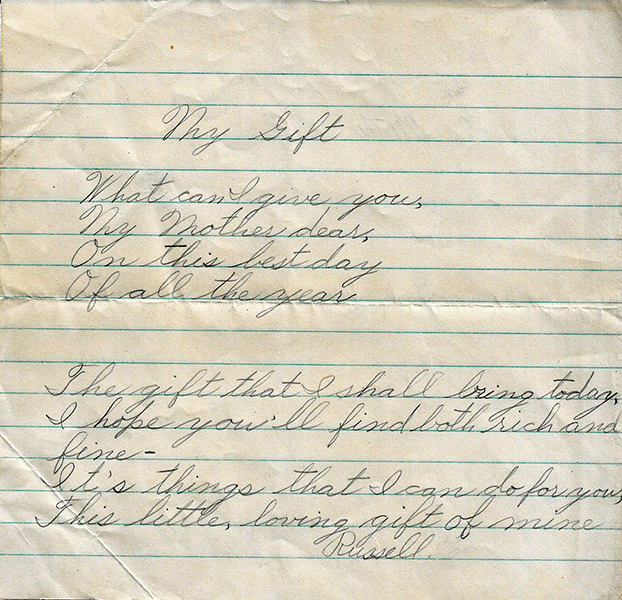 My Gift
What can I give you,
My Mother dear,
On this best day
Of all the year
The gift that I shall bring today,
I hope you'll find both rich and
fine-
It's things that I can do for you,
This little, loving gift of mine
Russell.